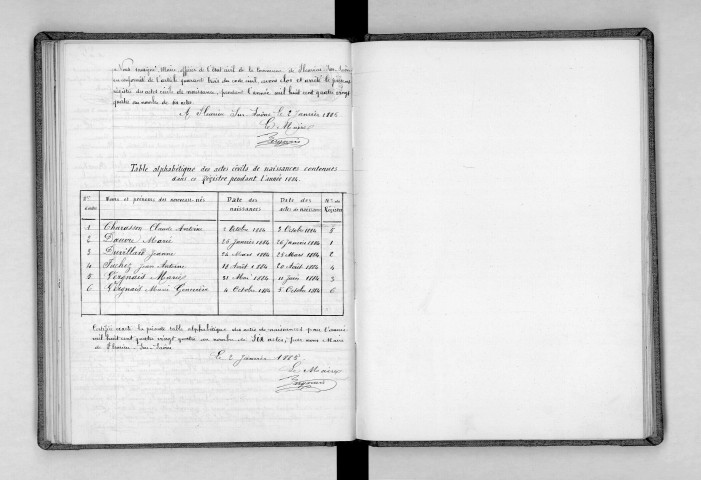 Nous soussigné Maire officier de l'état civil de la Commune de Fleurieu Sur Saône
en conformité de l'article quarante trois du code civil, avons clos et arrêté le présent
registre des actes civils de naissances, pendant l'année mil huit cent quatre vingt
quatre au nombre de six actes.
A Fleurieu Sur Saône le 2 Janvier 1885
Le Maire
Table alphabétique des actes civils de naissances contenues
dans ce Registre pendant l'année 1884.
Nos d'ordre Noms et prénoms des nouveaux nés Date des naissances Date des actes de naissances Nos du Registre
1 Charasson Claude Antoine 2 Octobre 1884 3 Octobre 1884 5
2 Marie 25 Janvier 1884 26 Janvier 1884 1
3 Duvillard Jeanne 24 Mars 1884 25 Mars 1884 2
4 Jean Antoine 18 Août 1884 20 Août 1884 4
5 Vergnais Marie 31 Mai 1884 1er Juin 1884 3
6 Vergnais Marie 4 Octobre 1884 5 Octobre 1884 6
Certifiée exacte la présente table alphabétique des actes de naissances pour l'année
mil huit cent quatre vingt quatre au nombre de Six actes, par nous Maire
de Fleurieu Sur Saône
Le 2 Janvier 1885
Le Maire